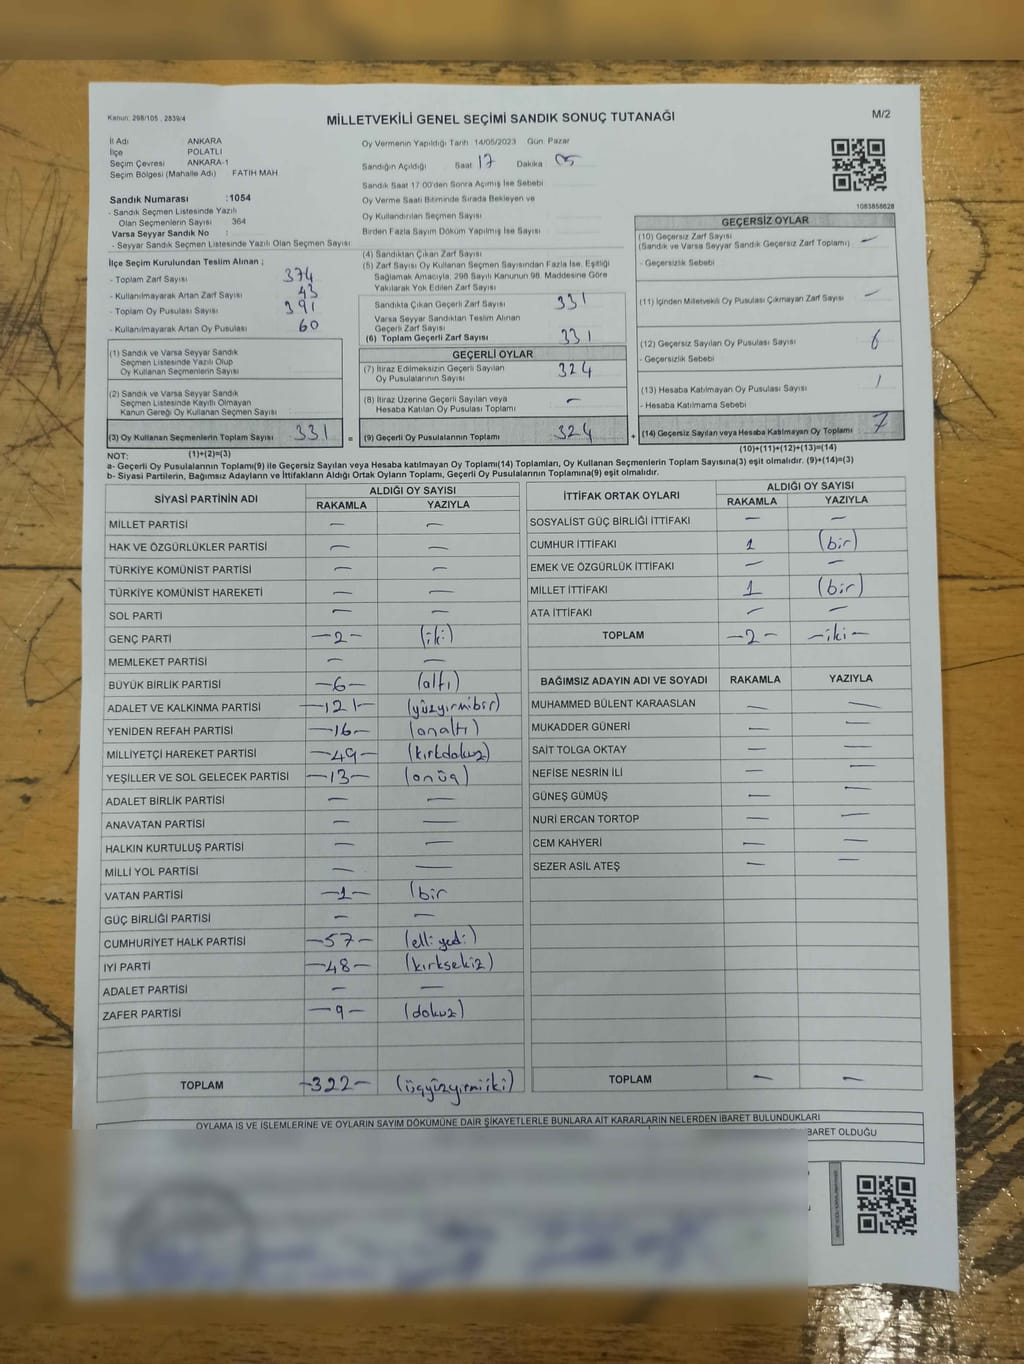 Kanun: 298/105 , 2839/4
MİLLETVEKİLİ GENEL SEÇİMİ SANDIK SONUÇ TUTANAĞI
M/2
İl Adı ANKARA
İlçe POLATLI
Seçim Çevresi ANKARA-1
Seçim Bölgesi (Mahalle Adı) FATİH MAH
Sandık Numarası :1054
- Sandık Seçmen Listesinde Yazılı
Olan Seçmenlerin Sayısı 364
Varsa Seyyar Sandık No :
- Seyyar Sandık Seçmen Listesinde Yazılı Olan Seçmen Sayısı
Oy Vermenin Yapıldığı Tarih 14/05/2023 Gün Pazar
Sandığın Açıldığı Saat 17 Dakika 05
Sandık Saat 17:00'den Sonra Açılmış İse Sebebi
Oy Verme Saati Bitiminde Sırada Bekleyen ve
Oy Kullandırılan Seçmen Sayısı
Birden Fazla Sayım Döküm Yapılmış İse Sayısı
1083858628
İlçe Seçim Kurulundan Teslim Alınan ;
- Toplam Zarf Sayısı 374
- Kullanılmayarak Artan Zarf Sayısı 43
- Toplam Oy Pusulası Sayısı 391
- Kullanılmayarak Artan Oy Pusulası 60
(1) Sandık ve Varsa Seyyar Sandık
Seçmen Listesinde Yazılı Olup
Oy Kullanan Seçmenlerin Sayısı
(2) Sandık ve Varsa Seyyar Sandık
Seçmen Listesinde Kayıtlı Olmayan
Kanun Gereği Oy Kullanan Seçmen Sayısı
(3) Oy Kullanan Seçmenlerin Toplam Sayısı 331 =
(1)+(2)=(3)
(4) Sandıktan Çıkan Zarf Sayısı
(5) Zarf Sayısı Oy Kullanan Seçmen Sayısından Fazla İse, Eşitliği
Sağlamak Amacıyla, 298 Sayılı Kanunun 98. Maddesine Göre
Yakılarak Yok Edilen Zarf Sayısı
Sandıkta Çıkan Geçerli Zarf Sayısı 331
Varsa Seyyar Sandıktan Teslim Alınan
Geçerli Zarf Sayısı
(6) Toplam Geçerli Zarf Sayısı 331
GEÇERLİ OYLAR
(7) İtiraz Edilmeksizin Geçerli Sayılan
Oy Pusulalarının Sayısı 324
(8) İtiraz Üzerine Geçerli Sayılan veya
Hesaba Katılan Oy Pusulası Toplamı –
(9) Geçerli Oy Pusulalarının Toplamı 324 +
GEÇERSİZ OYLAR
(10) Geçersiz Zarf Sayısı
(Sandık ve Varsa Seyyar Sandık Geçersiz Zarf Toplamı) –
- Geçersizlik Sebebi
(11) İçinden Milletvekili Oy Pusulası Çıkmayan Zarf Sayısı –
(12) Geçersiz Sayılan Oy Pusulası Sayısı 6
- Geçersizlik Sebebi
(13) Hesaba Katılmayan Oy Pusulası Sayısı 1
- Hesaba Katılmama Sebebi
(14) Geçersiz Sayılan veya Hesaba Katılmayan Oy Toplamı 7
(10)+(11)+(12)+(13)=(14)
NOT:
a- Geçerli Oy Pusulalarının Toplamı(9) ile Geçersiz Sayılan veya Hesaba katılmayan Oy Toplamı(14) Toplamları, Oy Kullanan Seçmenlerin Toplam Sayısına(3) eşit olmalıdır. (9)+(14)=(3)
b- Siyasi Partilerin, Bağımsız Adayların ve İttifakların Aldığı Oyların Toplamı, Geçerli Oy Pusulalarının Toplamına(9) eşit olmalıdır.
SİYASİ PARTİNİN ADI ALDIĞI OY SAYISI
RAKAMLA YAZIYLA
MİLLET PARTİSİ – –
HAK VE ÖZGÜRLÜKLER PARTİSİ – –
TÜRKİYE KOMÜNİST PARTİSİ – –
TÜRKİYE KOMÜNİST HAREKETİ – –
SOL PARTİ – –
GENÇ PARTİ –2– (iki)
MEMLEKET PARTİSİ – –
BÜYÜK BİRLİK PARTİSİ –6– (altı)
ADALET VE KALKINMA PARTİSİ –121– (yüzyirmibir)
YENİDEN REFAH PARTİSİ –16– (onaltı)
MİLLİYETÇİ HAREKET PARTİSİ –49– (kırkdokuz)
YEŞİLLER VE SOL GELECEK PARTİSİ –13– (onüç)
ADALET BİRLİK PARTİSİ – –
ANAVATAN PARTİSİ – –
HALKIN KURTULUŞ PARTİSİ – –
MİLLİ YOL PARTİSİ – –
VATAN PARTİSİ –1– (bir
GÜÇ BİRLİĞİ PARTİSİ – –
CUMHURİYET HALK PARTİSİ –57– (elli yedi)
İYİ PARTİ –48– (kırksekiz)
ADALET PARTİSİ – –
ZAFER PARTİSİ –9– (dokuz)
TOPLAM –322– (üçyüzyirmiiki)
İTTİFAK ORTAK OYLARI ALDIĞI OY SAYISI
RAKAMLA YAZIYLA
SOSYALİST GÜÇ BİRLİĞİ İTTİFAKI – –
CUMHUR İTTİFAKI 1 (bir)
EMEK VE ÖZGÜRLÜK İTTİFAKI – –
MİLLET İTTİFAKI 1 (bir)
ATA İTTİFAKI – –
TOPLAM –2– –iki–
BAĞIMSIZ ADAYIN ADI VE SOYADI RAKAMLA YAZIYLA
MUHAMMED BÜLENT KARAASLAN – –
MUKADDER GÜNERİ – –
SAİT TOLGA OKTAY – –
NEFİSE NESRİN İLİ – –
GÜNEŞ GÜMÜŞ – –
NURİ ERCAN TORTOP – –
CEM KAHYERİ – –
SEZER ASİL ATEŞ – –
TOPLAM – –
OYLAMA İŞ VE İŞLEMLERİNE VE OYLARIN SAYIM DÖKÜMÜNE DAİR ŞİKAYETLERLE BUNLARA AİT KARARLARIN NELERDEN İBARET BULUNDUKLARI
İBARET OLDUĞU